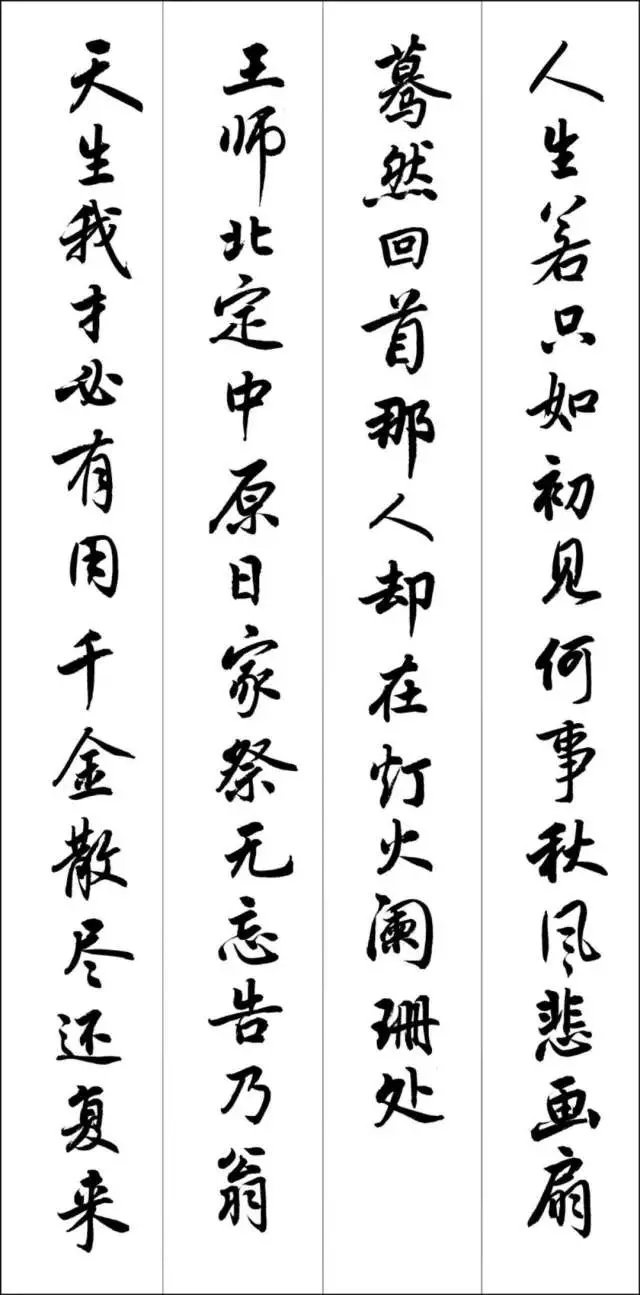 人生若只如初见何事秋风悲画扇
蓦然回首那人却在灯火阑珊处
王师北定中原日家祭无忘告乃翁
天生我才必有用千金散尽还复来